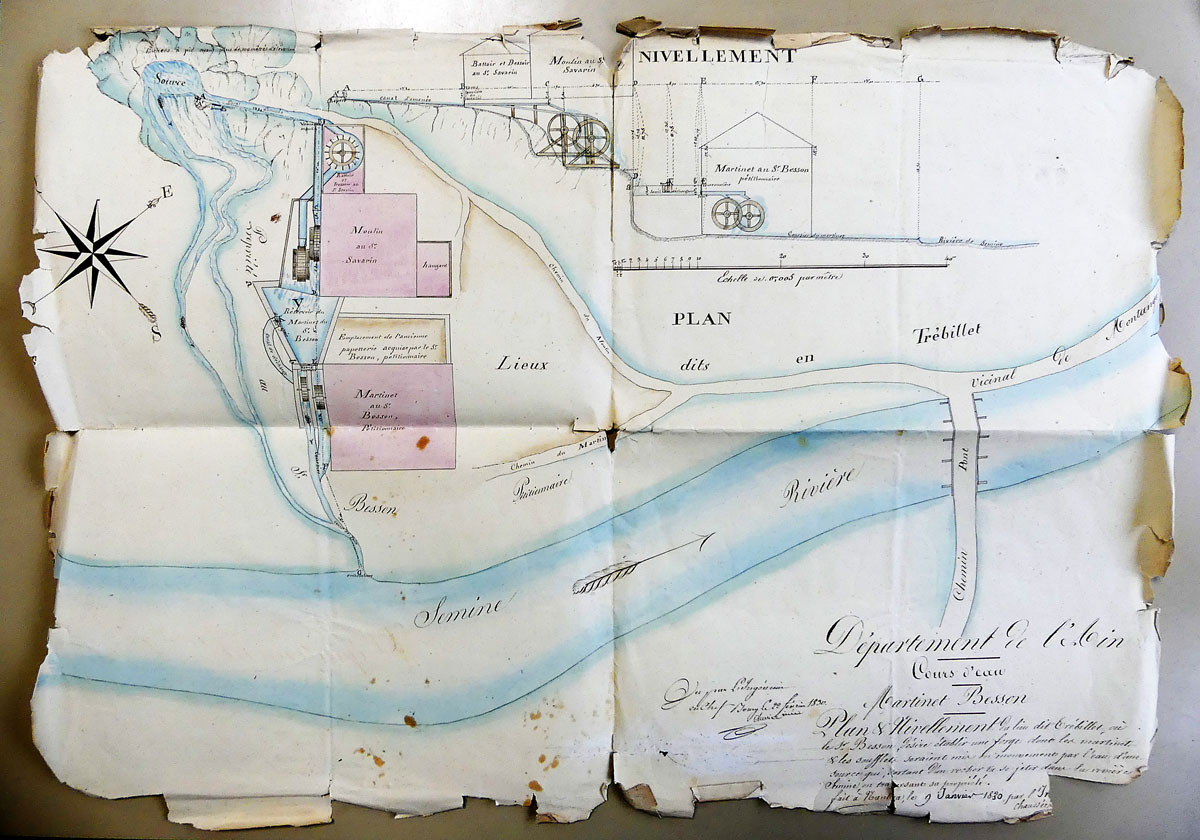 NIVELLEMENT
Battoir et
au Sr. Savarin
Moulin au Sr.
Savarin
A
C
D
E
F
G
Canal d'amenée
Source
Martinet au Sr. Besson
pétitionnaire
Rivière de Semine
10
20
Echelle de 0,005 par mètre
E
Moulin
au Sr.
Savarin
hangard
Propriété
au
Sr.
Besson
Réservoir du
Martinet du
Sr.
Besson
Emplacement de l'ancienne
papetterie acquise par le Sr.
Besson, pétitionnaire
Martinet
au Sr.
Besson,
Pétitionnaire
Chemin du Moulin
PLAN
Lieux dits en Trébillet
Vicinal de Montan
Pont
Chemin
Chemin du Martin
Pétitionnaire
G
Rivière
Semine
Département de l'Ain
Cours d'eau
Martinet Besson
Plan & Nivellement du lieu dit Trébillet, où
le Sr. Besson désire établir une forge dont les martinets
& les soufflets seraient mis en mouvement par l'eau d'une
source qui, sortant d'un rocher va se jeter dans la rivière
Semine, en traversant sa propriété.
fait à Nantua, le 9 Janvier 1830 par l'In
chaussée
Vu par l'Ingénieur
en Chef Bourg le 22 février 1830.